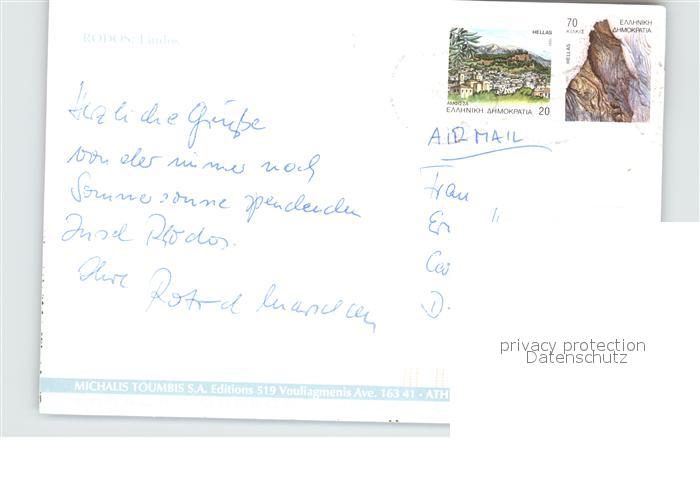 RODOS: Lindos
HELLAS
ΑΜΦΙΣΣΑ
ΕΛΛΗΝΙΚΗ ΔΗΜΟΚΡΑΤΙΑ 20
70
ΚΙΛΚΙΣ
HELLAS
ΕΛΛΗΝΙΚΗ
ΔΗΜΟΚΡΑΤΙΑ
Herzliche Grüße
von der immer noch
Sommersonne spendenden
Insel Rhodos.
Ihre
AIR MAIL
Frau
privacy protection
Datenschutz
MICHALIS TOUMBIS S.A. Editions 519 Vouliagmenis Ave. 163 41 - ATH